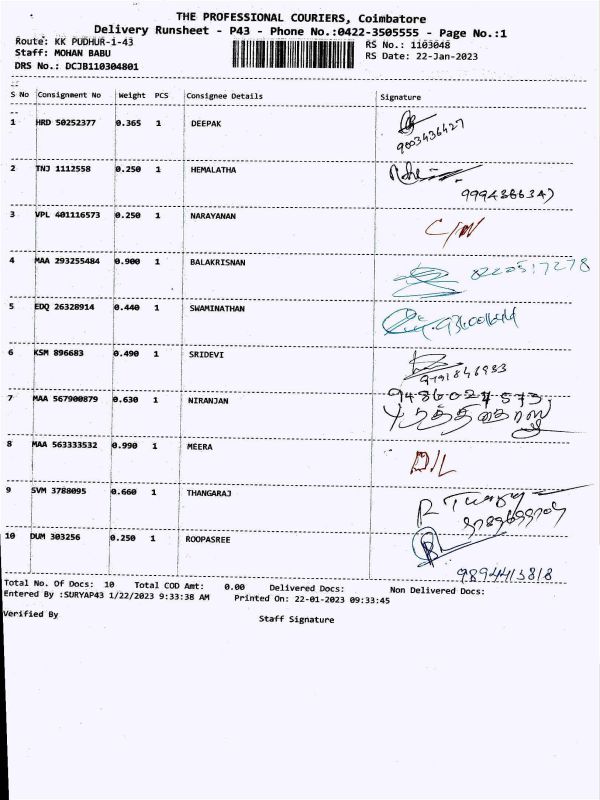 THE PROFESSIONAL COURIERS, Coimbatore
Delivery Runsheet - P43 - Phone No.:0422-3505555 - Page No.:1
Route: KK PUDHUR-i-43
RS No.: 1103048
Staff: MOHAN BABU
RS Date: 22-Jan-2023
DRS No.: DCJB110304801
S No Consignment No Weight PCS Consignee Details Signature
1 HRD 50252377 0.365 1 DEEPAK
9003436427
2 TNJ 1112558 0.250 1 HEMALATHA
3 VPL 401116573 0.250 1 NARAYANAN
4 MAA 293255484 0.900 1 BALAKRISNAN
5 EDQ 26328914 0.440 1 SWAMINATHAN
6 KSM 896683 0.490 1 SRIDEVI
7 MAA 567900879 0.630 1 NIRANJAN
8 MAA 563333532 0.990 1 MEERA
D/L
9 SVM 3788095 0.660 1 THANGARAJ
10 DUM 303256 0.250 1 ROOPASREE
9894413818
Total No. Of Docs: 10 Total COD Amt: 0.00 Delivered Docs: Non Delivered Docs:
Entered By :SURYAP43 1/22/2023 9:33:38 AM Printed On: 22-01-2023 09:33:45
Verified By
Staff Signature